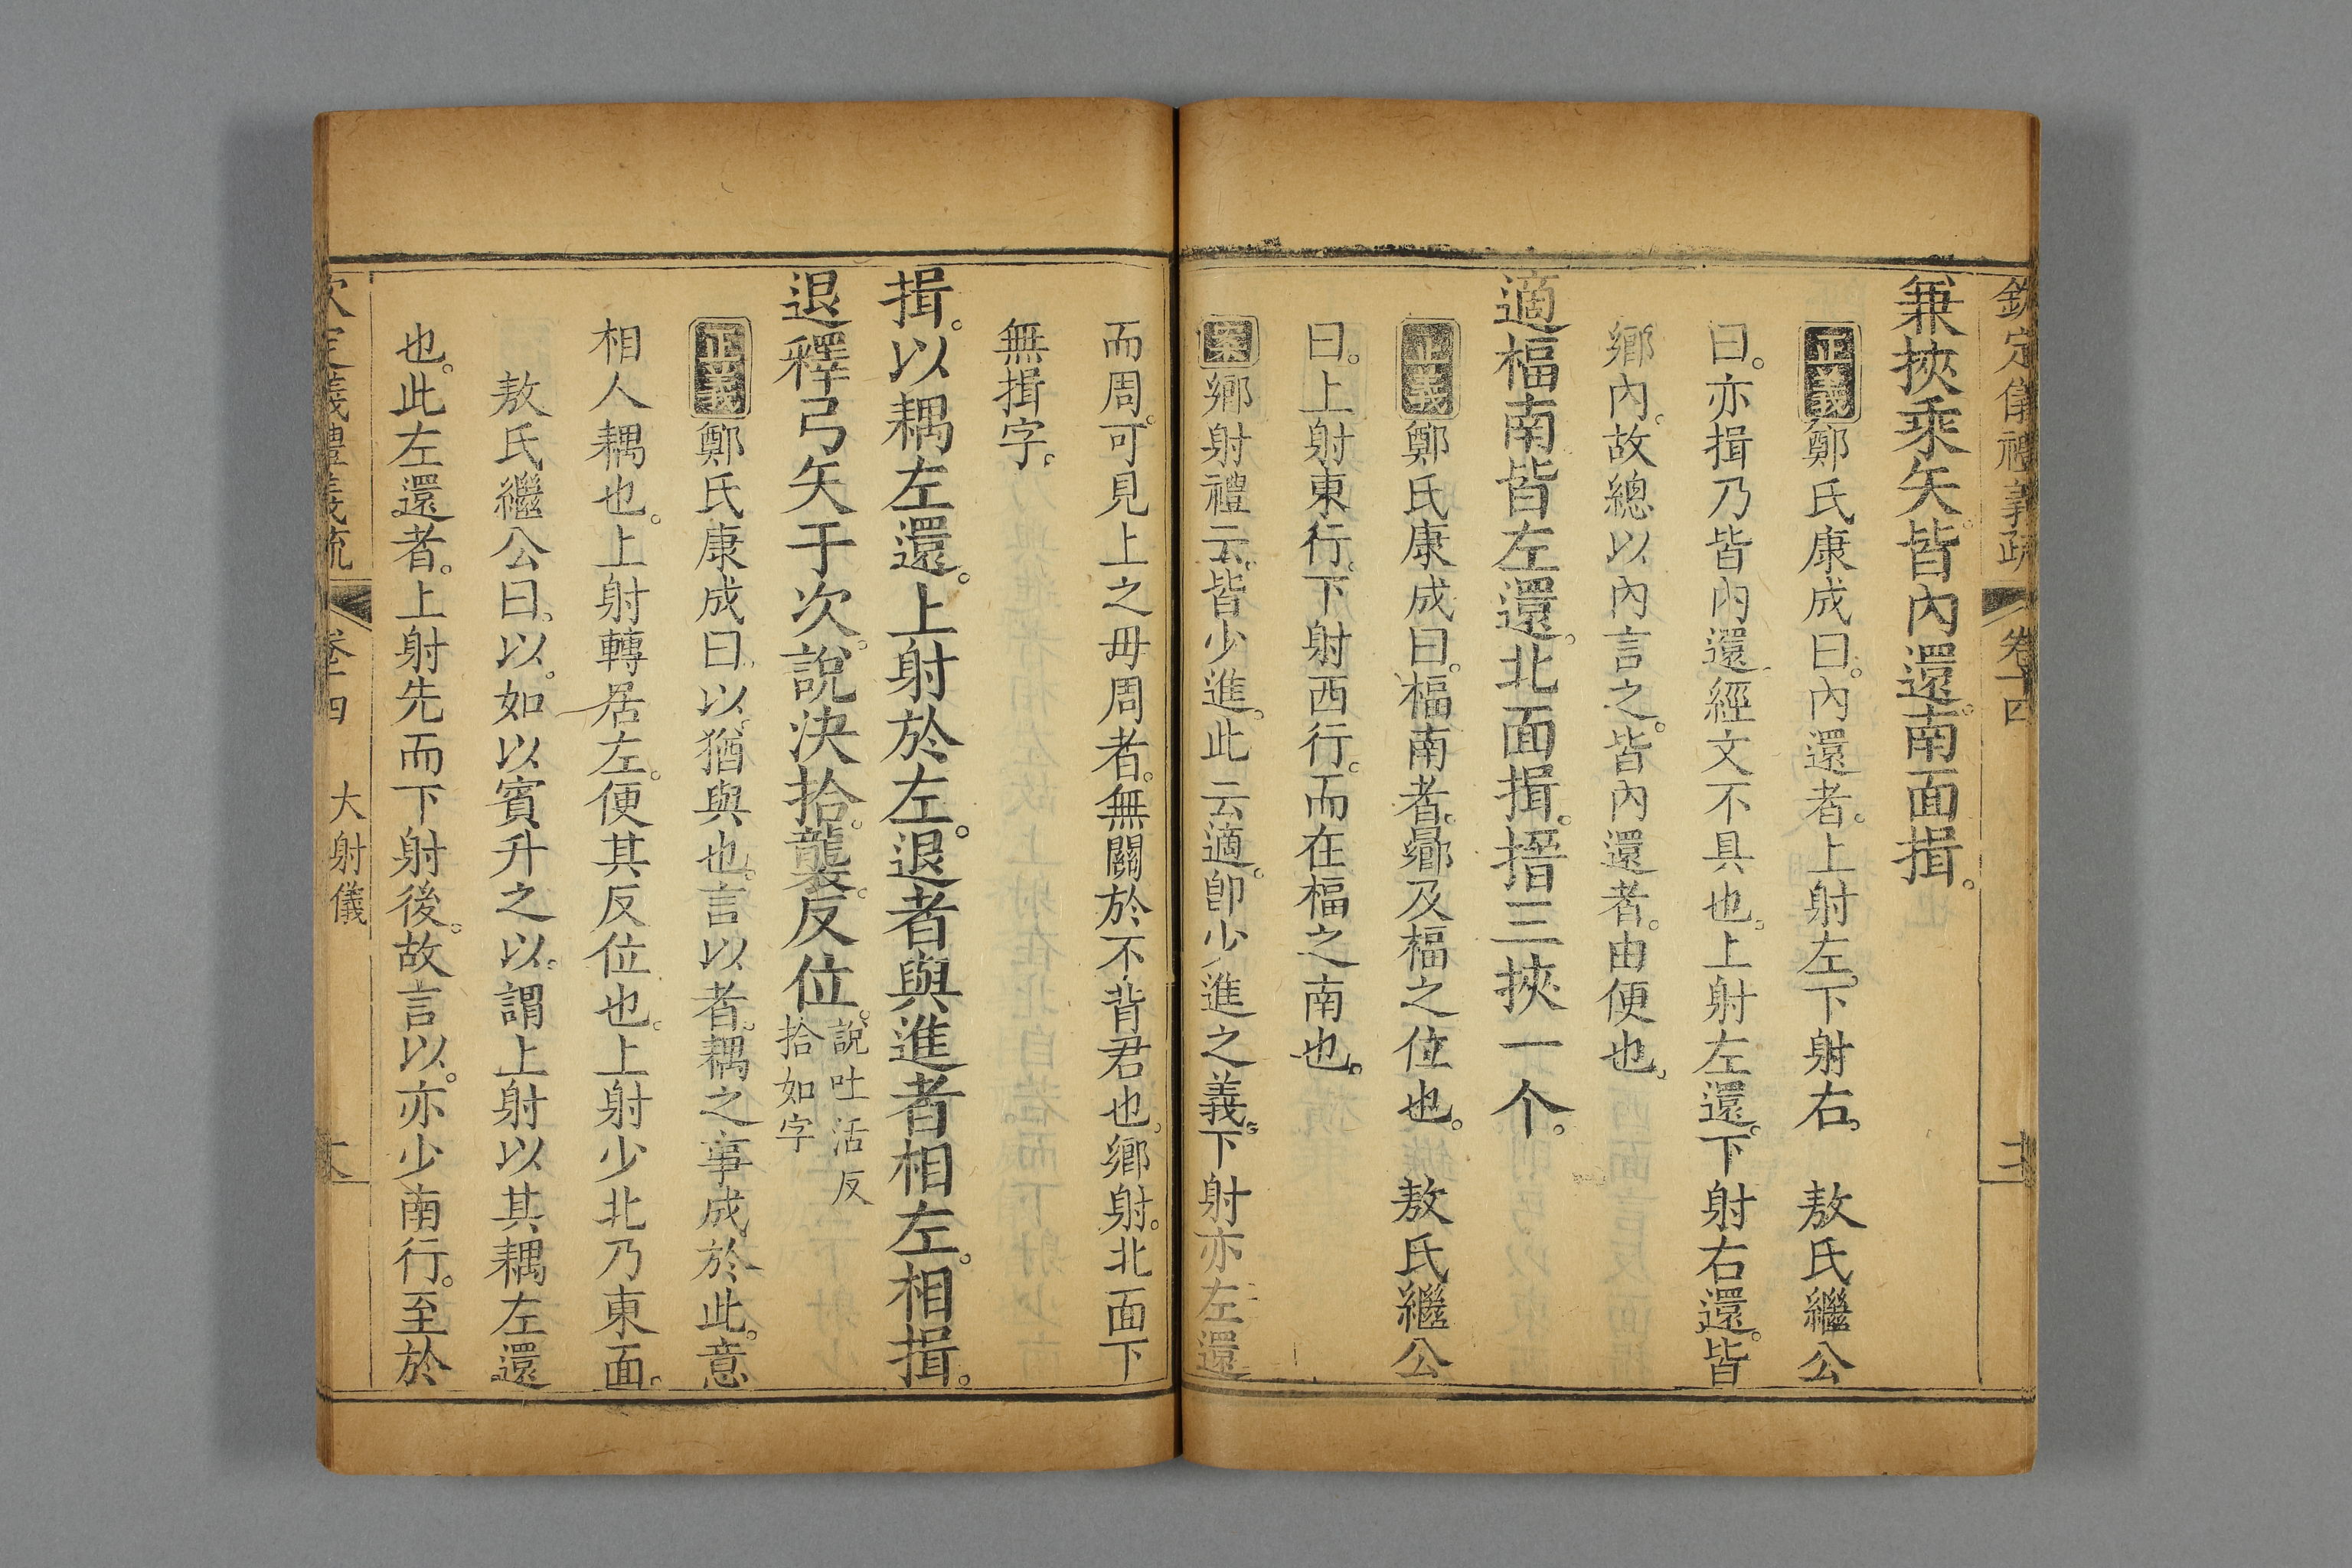 欽定儀禮義疏 卷十四
兼挾乘矢。皆內還。南面揖。
正義鄭氏康成曰。內還者。上射左。下射右。 敖氏繼公
曰。亦揖乃皆內還。經文不具也。上射左還。下射右還。皆
鄉內。故總以內言之。皆內還者。由便也。
適楅南皆左還。北面揖。搢三挾一个。
正義鄭氏康成曰。楅南者。曏及楅之位也。 敖氏繼公
曰。上射東行。下射西行。而在楅之南也。
案鄉射禮云。皆少進。此云適。卽少進之義。下射亦左還
而周。可見上之毋周者。無關於不背君也。鄉射。北面下
無揖字。
揖。以耦左還。上射於左。退者與進者相左。相揖。
退釋弓矢于次。說決拾。襲。反位。說吐活反
拾如字
正義鄭氏康成曰。以。猶與也。言以者。耦之事成於此。意
相人耦也。上射轉居左。便其反位也。上射少北乃東面。
敖氏繼公曰。以。如以賓升之以。謂上射以其耦左還
也。此左還者。上射先而下射後。故言以。亦少南行。至於
欽定儀禮義疏 卷十四 大射儀